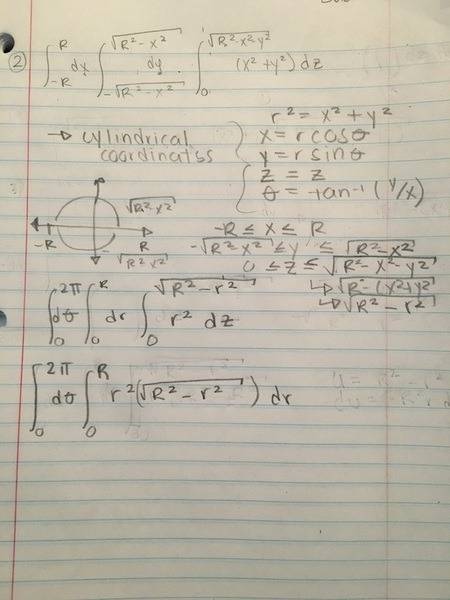 ② ∫_{-R}^{R} dx ∫_{-√R²-x²}^{√R²-x²} dy ∫_{0}^{√R²-x²-y²} (x²+y²) dz
→ cylindrical
coordinatss
r² = x² + y²
x = r cosθ
y = r sinθ
z = z
θ = tan⁻¹ (y/x)
√R²-x²
-R R
√R²-x²
-R ≤ x ≤ R
-√R²-x² ≤ y ≤ √R²-x²
0 ≤ z ≤ √R²-x²-y²
↳ √R²-(x²+y²
↳ √R²-r²
∫_{0}^{2π} dθ ∫_{0}^{R} dr ∫_{0}^{√R²-r²} r² dz
∫_{0}^{2π} dθ ∫_{0}^{R} r² (√R²-r²) dr